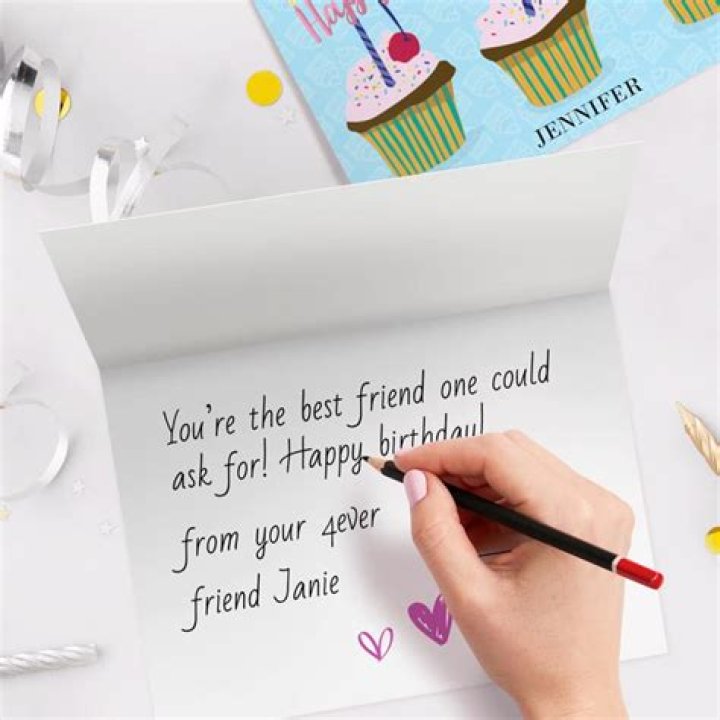 Hap
JENNIFER
You're the best friend one could
ask for! Happy birthday!
from your 4ever
friend Janie